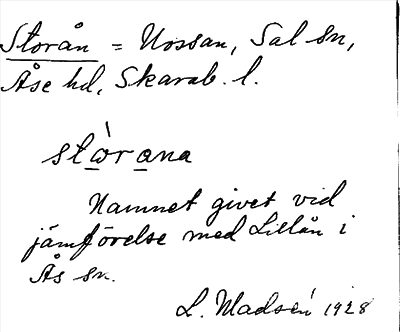 Storån = Nossan, Sal sn,
Åse hd, Skarab. l.
stòrana
Namnet givet vid
jämförelse med Lillån i
Ås sn.
L. Madsén 1928